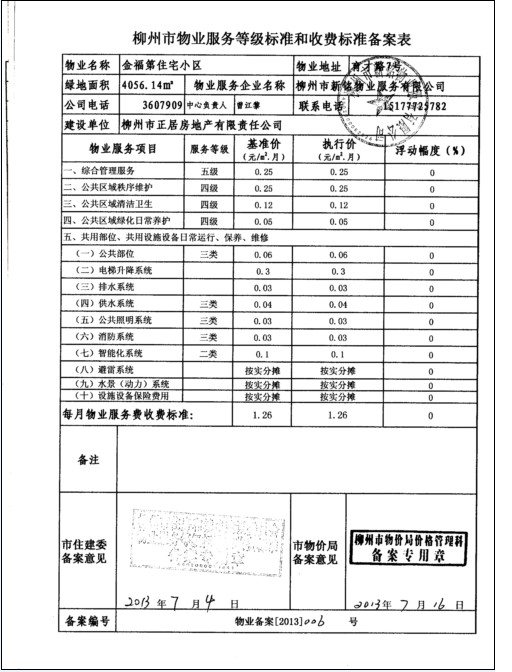 柳州市物业服务等级标准和收费标准备案表
物业名称 金福第住宅小区 物业地址 育才路7号
绿地面积 4056.14㎡ 物业服务企业名称 柳州市新铭物业服务有限公司
公司电话 3607909 中心负责人 曾江黎 联系电话 15177725782
建设单位 柳州市正居房地产有限责任公司
物业服务项目 服务等级 基准价 (元/㎡.月) 执行价 (元/㎡.月) 浮动幅度(%)
一、综合管理服务 五级 0.25 0.25 0
二、公共区域秩序维护 四级 0.25 0.25 0
三、公共区域清洁卫生 四级 0.12 0.12 0
四、公共区域绿化日常养护 四级 0.05 0.05 0
五、共用部位、共用设施设备日常运行、保养、维修
(一)公共部位 三类 0.06 0.06 0
(二)电梯升降系统 0.3 0.3 0
(三)排水系统 0.03 0.03 0
(四)供水系统 三类 0.04 0.04 0
(五)公共照明系统 三类 0.03 0.03 0
(六)消防系统 三类 0.03 0.03 0
(七)智能化系统 二类 0.1 0.1 0
(八)避雷系统 按实分摊 按实分摊 0
(九)水景(动力)系统 按实分摊 按实分摊 0
(十)设施设备保险费用 按实分摊 按实分摊 0
每月物业服务费收费标准: 1.26 1.26 0
备注
市住建委
备案意见
2013年7月4日
市物价局
备案意见
柳州市物价局价格管理科
备案专用章
2013年7月16日
备案编号 物业备案[2013]006 号